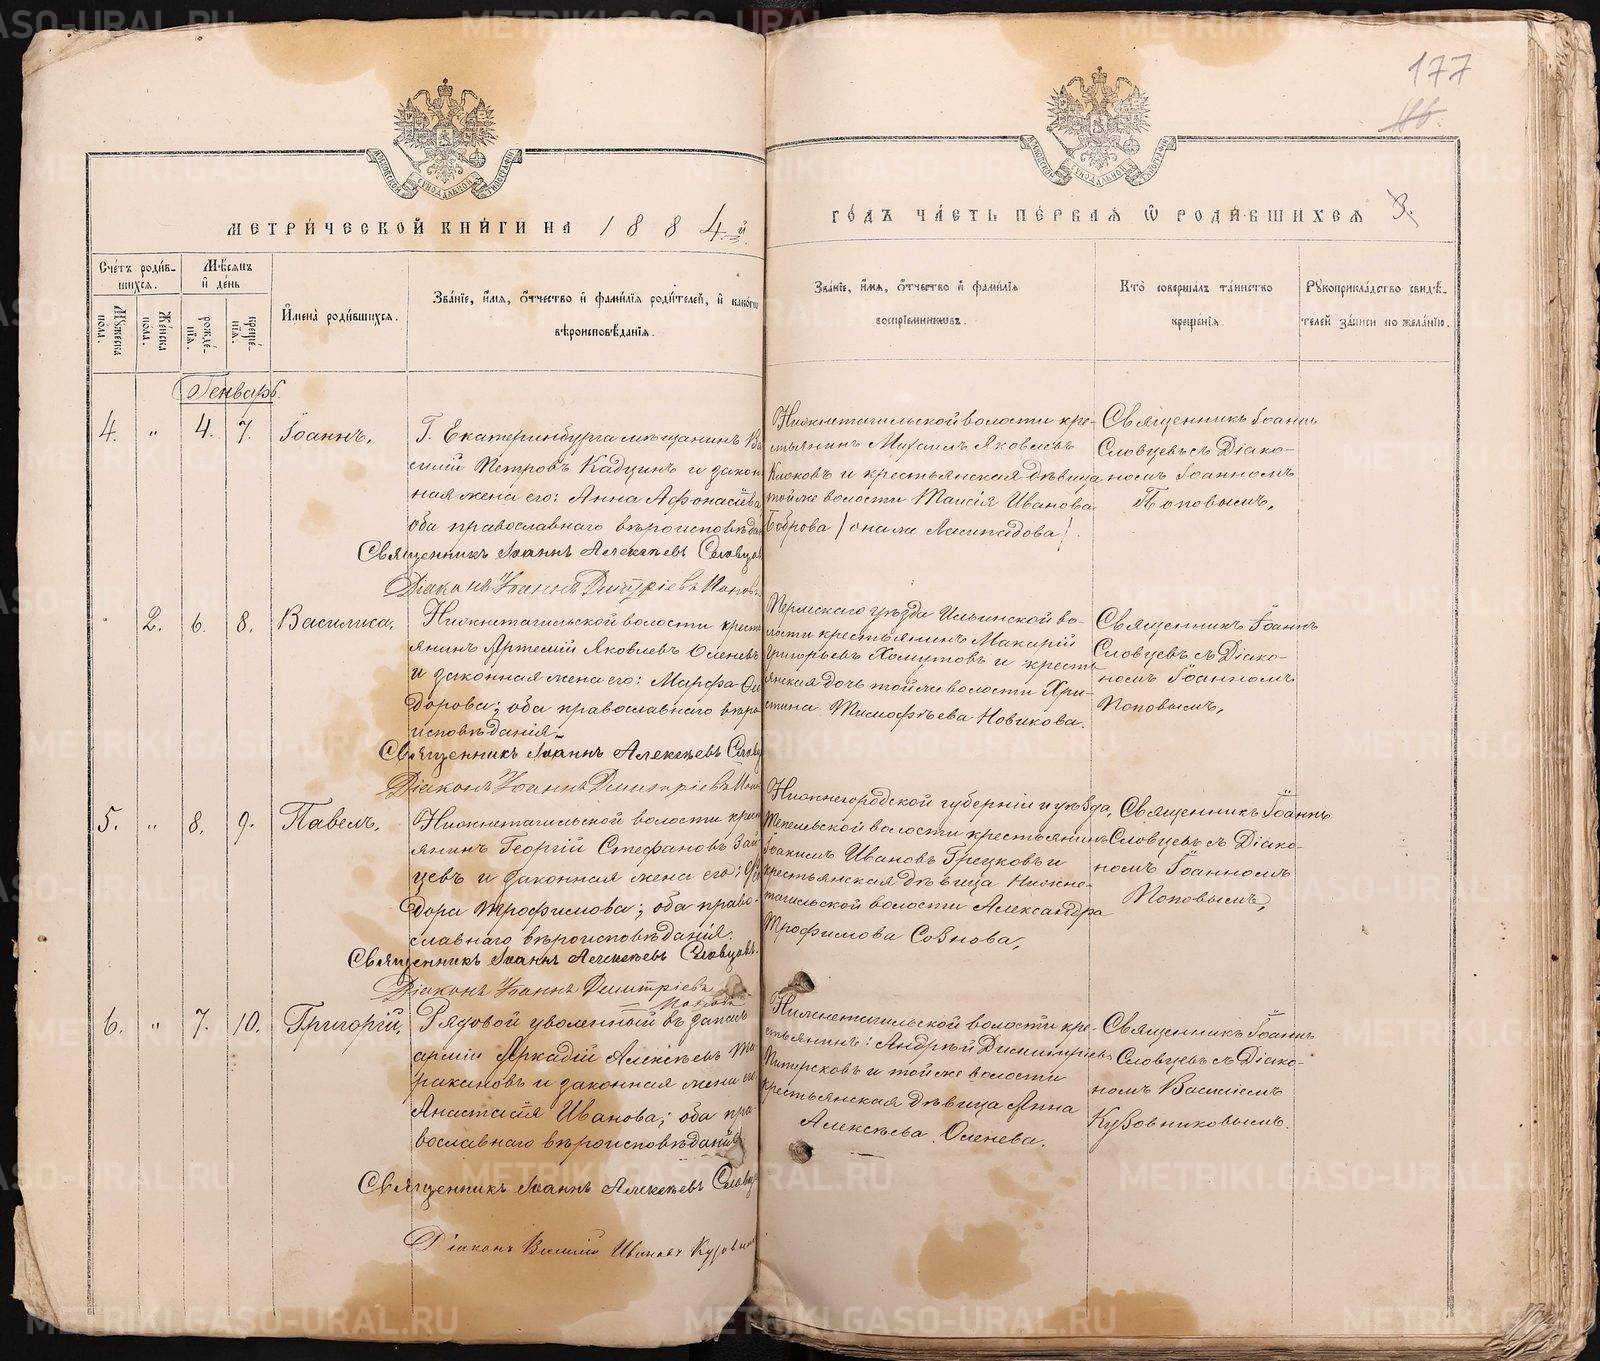 177
МЕТРИ́ЧЕСКОЙ КНИ́ГИ НА 1884.й
ГО́ДЪ ЧА́СТЬ ПЕ́РВАЯ Ѡ РОДИ́ВШИХСЯ 3.
Сче́тъ роди́в-
шихся.
Мѣ́сяцъ
и де́нь
Му́жеска
по́ла.
Же́нска
по́ла.
рожде́-
нїя.
креще́-
нїя.
Имена̀ роди́вшихся.
Зва́нїе, и́мя, о́тчество и фами́лїя роди́телей, и како́гѡ
вѣроисповѣ́данїя.
Зва́нїе, и́мя, о́тчество и фами́лїя
воспрїе́мниковъ.
Кто̀ соверша́лъ та́инство
креще́нїя.
Рꙋкоприкла́дство свидѣ́-
телей за́писи по жела́нїю.
Генварь
4. „ 4. 7. Іоаннъ,
Г. Екатеринбурга мѣщанинъ Ва
силій Петровъ Кадцинъ и закон
ная жена его: Анна Афонасіева
оба православнаго вѣроисповѣдан
Священникъ Іоаннъ Алексѣевъ Словцов
Діаконъ Іоаннъ Димитріевъ Попов
Нижнетагильской волости кре-
стьянинъ Михаилъ Яковлевъ
Клюковъ и крестьянская дѣвица
тойже волости Таисія Иванова
Боброва / она же Лампадова /.
Священникъ Іоаннъ
Словцевъ съ Діако-
номъ Іоанномъ
Поповымъ,
2. 6. 8. Василиса,
Нижнетагильской волости кресть
янинъ Артемій Яковлевъ Оленевъ
и законная жена его: Марфа Си
дорова; оба православнаго вѣро
исповѣданія.
Священникъ Іоаннъ Алексѣевъ Словц
Діаконъ Іоаннъ Димитріевъ Поп
Пермскаго уѣзда Ильинской во-
лости крестьянинъ Макарій
Григорьевъ Хомутовъ и кресть-
янская дочь тойже волости Хри-
стина Тимофѣева Новикова.
Священникъ Іоаннъ
Словцевъ съ Діако-
номъ Іоанномъ
Поповымъ,
5. „ 8. 9. Павелъ,
Нижнетагильской волости крест
янинъ Георгій Стефановъ Зай
цевъ и законная жена его: Фе
дора Трофимова; оба право-
славнаго вѣроисповѣданія.
Священникъ Іоаннъ Алексѣевъ Словцовъ.
Діаконъ Іоаннъ Димитріевъ
Поповъ
Нижнегородской губерніи и уѣзда,
волости крестьянинъ
Іоакимъ Ивановъ Грецковъ и
крестьянская дѣвица Нижне-
тагильской волости Александра
Трофимова Созонова,
Священникъ Іоаннъ
Словцевъ съ Діако-
номъ Іоанномъ
Поповымъ,
6. „ 7. 10. Григорій,
Рядовой уволенный въ запасъ
арміи Аркадій Алексѣевъ Та
ракановъ и законная жена его
Анастасія Иванова; оба пра-
вославнаго вѣроисповѣданія
Священникъ Іоаннъ Алексѣевъ Словцо
Діаконъ Василій Ивановъ Кузовник
Нижнетагильской волости кре-
стьянинъ: Андрей Димитріевъ
Питерсковъ и тойже волости
крестьянская дѣвица Анна
Алексѣева Оленева.
Священникъ Іоаннъ
Словцевъ съ Діако-
номъ Василіемъ
Кузовниковымъ.
METRIKI.GASO-URAL.RU